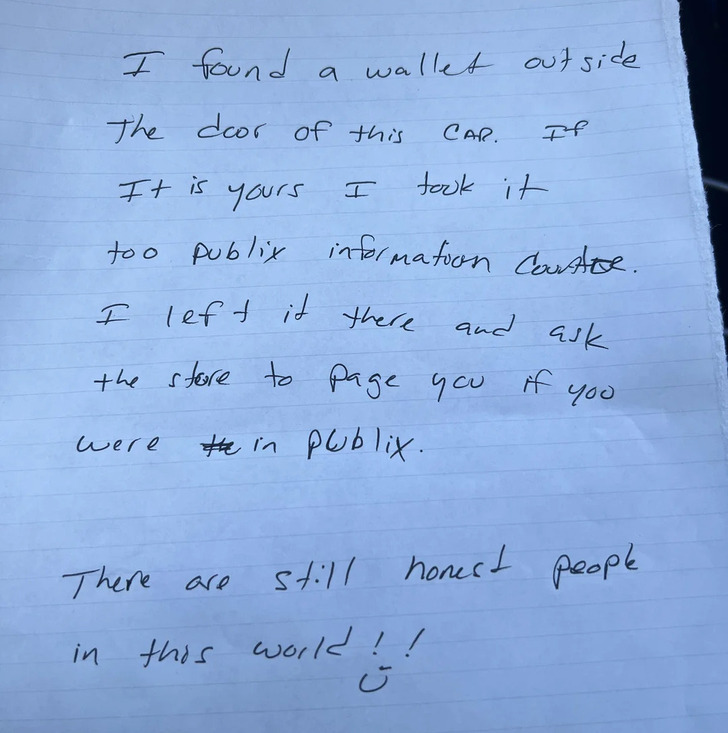 I found a wallet outside
The door of this CAR. If
It is yours I took it
too publix information Counter.
I left it there and ask
the store to page you if you
were in publix.
There are still honest people
in this world!!